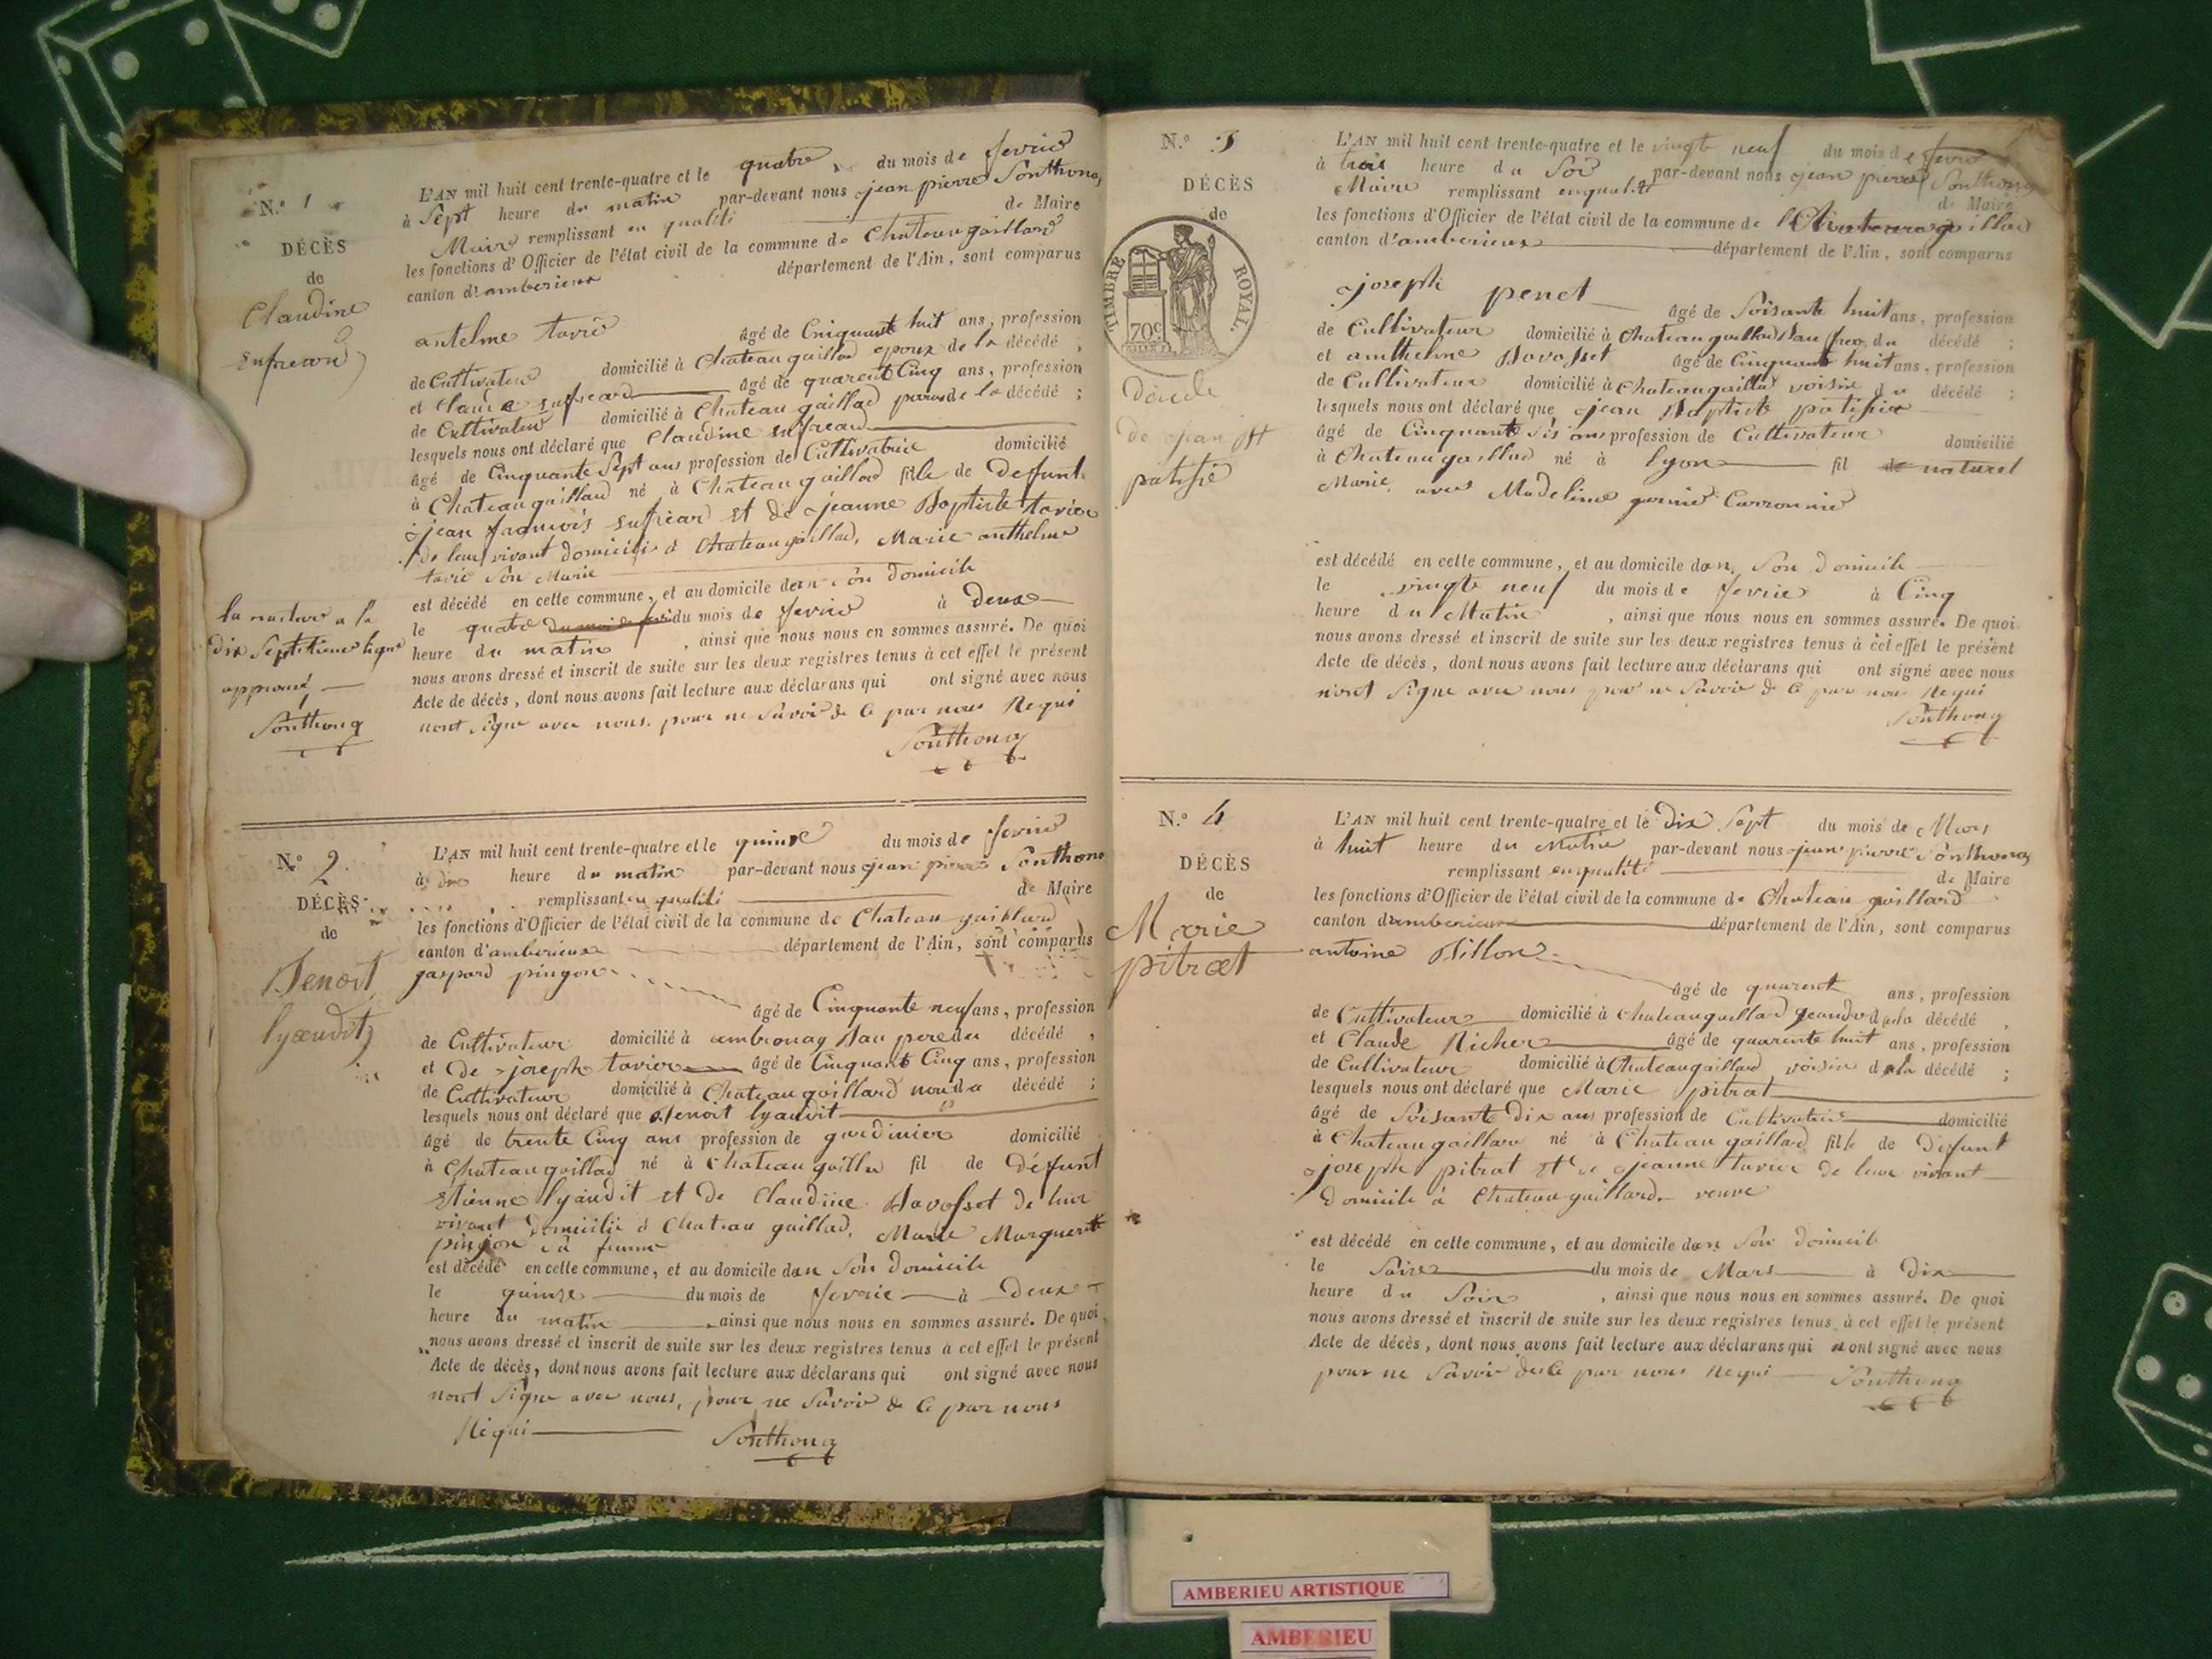 N.º 1
DÉCÈS
de
Claudine
sufreand
L'AN mil huit cent trente-quatre et le quatre du mois de fevrié
à Sept heure du matin par-devant nous jean pierre Sonthonax
Maire remplissant en qualité de Maire
les fonctions d'Officier de l'état civil de la commune de Chateau gaillard
canton d'amberieux département de l'Ain, sont comparus
antelme tavié âgé de Cinquante huit ans, profession
de Cultivateur domicilié à Chateau gaillard epoux de la décédé,
et Claude sufreand âgé de quarente Cinq ans, profession
de Cultivateur domicilié à Chateau gaillad de la décédé;
lesquels nous ont déclaré que Claudine sufreand
âgé de Cinquante Sept ans profession de Cultivatrice domicilié
à Chateau gaillard né à Chateau gaillad fille de defunt
jean franscois sufreand et de jeanne Baptiste tavier
de leur vivant domicilié à Chateau gaillad, Marie anthelme
tavié Son Marie
est décédé en cette commune, et au domicile dan Son domicile
le quatre du mois de fevrié à deux
heure du matin, ainsi que nous nous en sommes assuré. De quoi
nous avons dressé et inscrit de suite sur les deux registres tenus à cet effet le présent
Acte de décès, dont nous avons fait lecture aux déclarans qui ont signé avec nous
nont signe avec nous, pour ne Savoir de Ce par nous Requi
Sonthonax
la rature a la
dix Septitieme ligne
approuvé
Sonthonax
N.º 2
DÉCÈS
de
Benoit
lyaudit
L'AN mil huit cent trente-quatre et le quinze du mois de fevrié
à dix heure du matin par-devant nous jean pierre Sonthonax
remplissant en qualité de Maire
les fonctions d'Officier de l'état civil de la commune de Chateau gaillard
canton d'amberieux département de l'Ain, sont comparus
gaspard pingon
âgé de Cinquante neuf ans, profession
de Cultivateur domicilié à ambronay Bau pere du décédé,
et de joseph tavier âgé de Cinquante Cinq ans, profession
de Cultivateur domicilié à Chateau gaillard du décédé;
lesquels nous ont déclaré que Benoit lyaudit
âgé de trente Cinq ans profession de gardinier domicilié
à Chateau gaillad né à Chateau gaillad fil de défunt
Etienne lyaudit et de Claudine Bavosset de leur
vivant domicilié à Chateau gaillad, Marié Marguerite
pingon sa femme
est décédé en cette commune, et au domicile dan Son domicile
le quinze du mois de fevrié à deux
heure du matin, ainsi que nous nous en sommes assuré. De quoi
nous avons dressé et inscrit de suite sur les deux registres tenus à cet effet le présent
Acte de décès, dont nous avons fait lecture aux déclarans qui ont signé avec nous
nont Signe avec nous, pour ne Savoir de Ce par nous
Requi Sonthonax
N.º 3
DÉCÈS
de
TIMBRE ROYAL.
70c
de jean Bt
patissié
L'AN mil huit cent trente-quatre et le vingte neuf du mois de fevrié
à trois heure du Soir par-devant nous jean pierre Sonthonax
Maire remplissant enqualité de Maire
les fonctions d'Officier de l'état civil de la commune de Chateau gaillad
canton d'amberieux département de l'Ain, sont comparus
joseph penet âgé de Soisante huit ans, profession
de Cultivateur domicilié à Chateau gaillad Bau frer du décédé;
et antthelme Bavosset âgé de Cinquante huit ans, profession
de Cultivateur domicilié à Chateau gaillad voisin du décédé;
lesquels nous ont déclaré que jean Baptiste patissié
âgé de Cinquante Sis ans profession de Cultivateur domicilié
à Chateau gaillad né à lyon fil de naturel
Marié avec Madeleine
est décédé en cette commune, et au domicile dan Son domicile
le vingte neuf du mois de fevrié à Cinq
heure du Matin, ainsi que nous nous en sommes assuré. De quoi
nous avons dressé et inscrit de suite sur les deux registres tenus à cet effet le présent
Acte de décès, dont nous avons fait lecture aux déclarans qui ont signé avec nous
n'ont Signe avec nous pour ne Savoir de Ce par nous Requi
Sonthonax
N.º 4
DÉCÈS
de
Marie
pitrat
L'AN mil huit cent trente-quatre et le dix Sept du mois de Mars
à huit heure du Matin par-devant nous jean pierre Sonthonax
remplissant enqualité de Maire
les fonctions d'Officier de l'état civil de la commune de Chateau gaillard
canton d'amberieux département de l'Ain, sont comparus
antoine Billon
âgé de quarente ans, profession
de Cultivateur domicilié à Chateau gaillad geandre de la décédé,
et Claude Richer âgé de quarente huit ans, profession
de Cultivateur domicilié à Chateau gaillad voisin de la décédé;
lesquels nous ont déclaré que Marie pitrat
âgé de Soisante Dix ans profession de Cultivatrice domicilié
à Chateau gaillard né à Chateau gaillard fille de Défunt
joseph pitrat et de jeanne tavier de leur vivant
domicile à Chateau gaillard. veuve
est décédé en cette commune, et au domicile dan Son domicile
le Saize du mois de Mars à dix
heure du Soir, ainsi que nous nous en sommes assuré. De quoi
nous avons dressé et inscrit de suite sur les deux registres tenus à cet effet le présent
Acte de décès, dont nous avons fait lecture aux déclarans qui n ont signé avec nous
pour ne Savoir de Ce par nous Requi Sonthonax
AMBERIEU ARTISTIQUE
AMBERIEU